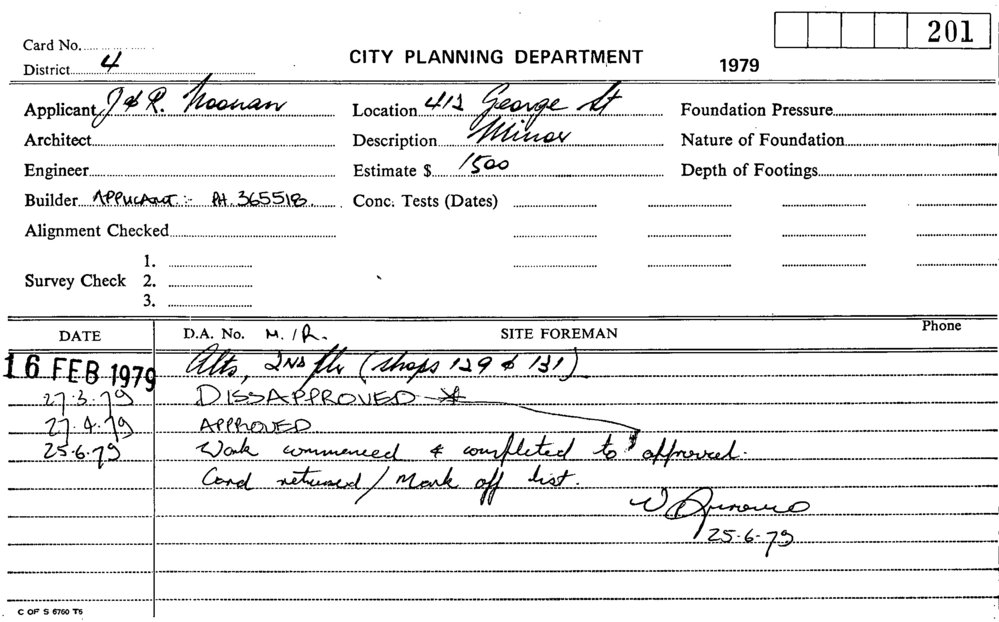 201
Card No.
CITY PLANNING DEPARTMENT
District 4
1979
Applicant J & R. Noonan
Location 412 George St
Foundation Pressure
Architect
Description Minor
Nature of Foundation
Engineer
Estimate $ 1500
Depth of Footings
Builder APPLICANT :- PH. 365518
Conc. Tests (Dates)
Alignment Checked
1.
Survey Check 2.
3.
DATE D.A. No. M. / R. SITE FOREMAN Phone
16 FEB 1979 Alts, 2ND flr (shops 129 & 131)
27.3.79 DISSAPPROVED *
27.4.79 APPROVED
25.6.79 Work commenced & completed to approval.
Card returned / Mark off list.
W
25.6.79
C OF S 6760 T5